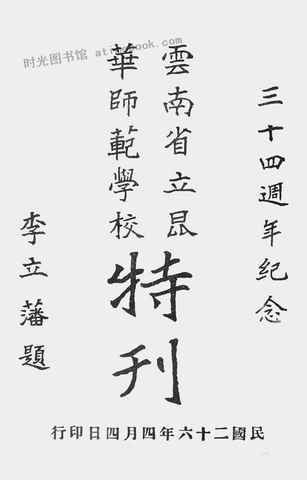 三十四週年纪念
雲南省立昆
華師範學校
特刊
李立藩題
民國二十六年四月四日印行
时光图书馆